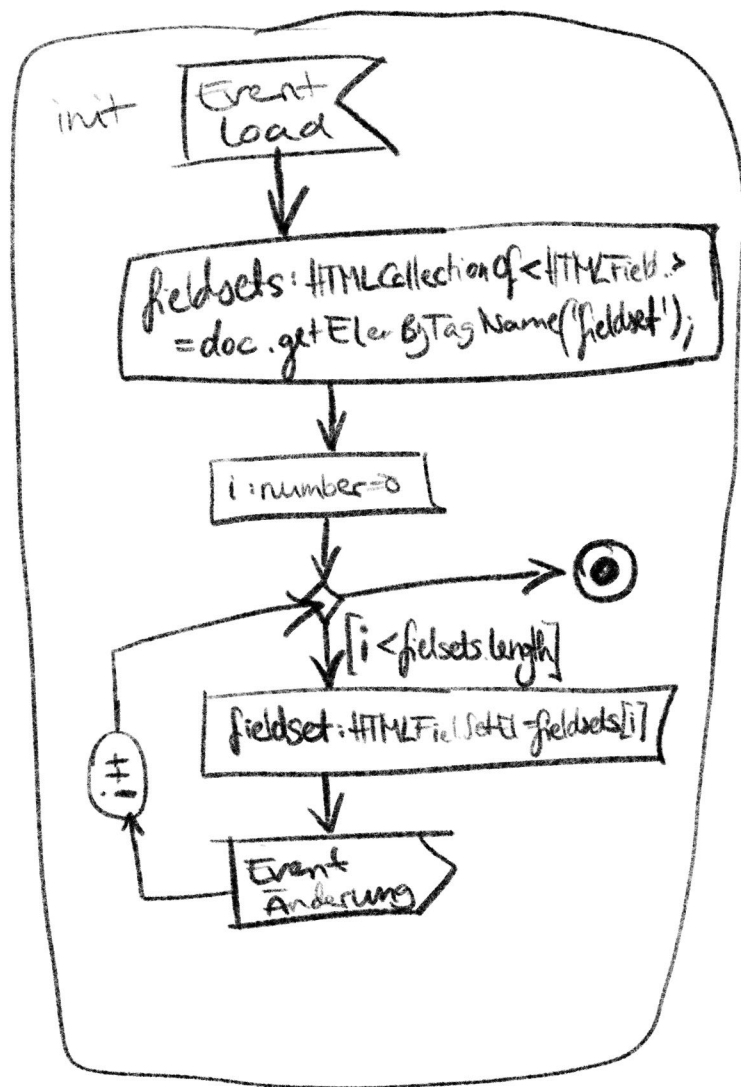 init
Event
Load
fieldsets: HTMLCollectionOf<HTMLField.>
=doc.getEle. ByTagName('fieldset');
i:number=0
[i<fielsets.length]
fieldset: HTMLFieldSetEl=fieldsets[i]
Event
Änderung